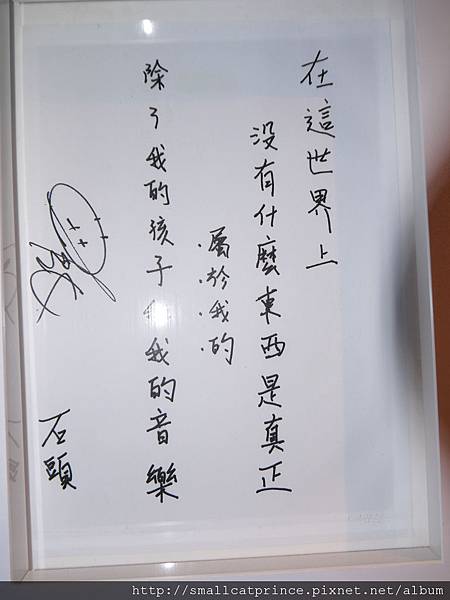 在這世界上
沒有什麼東西是真正
屬於我的
除了我的孩子和我的音樂
石頭
http://smallcatprince.pixnet.net/album